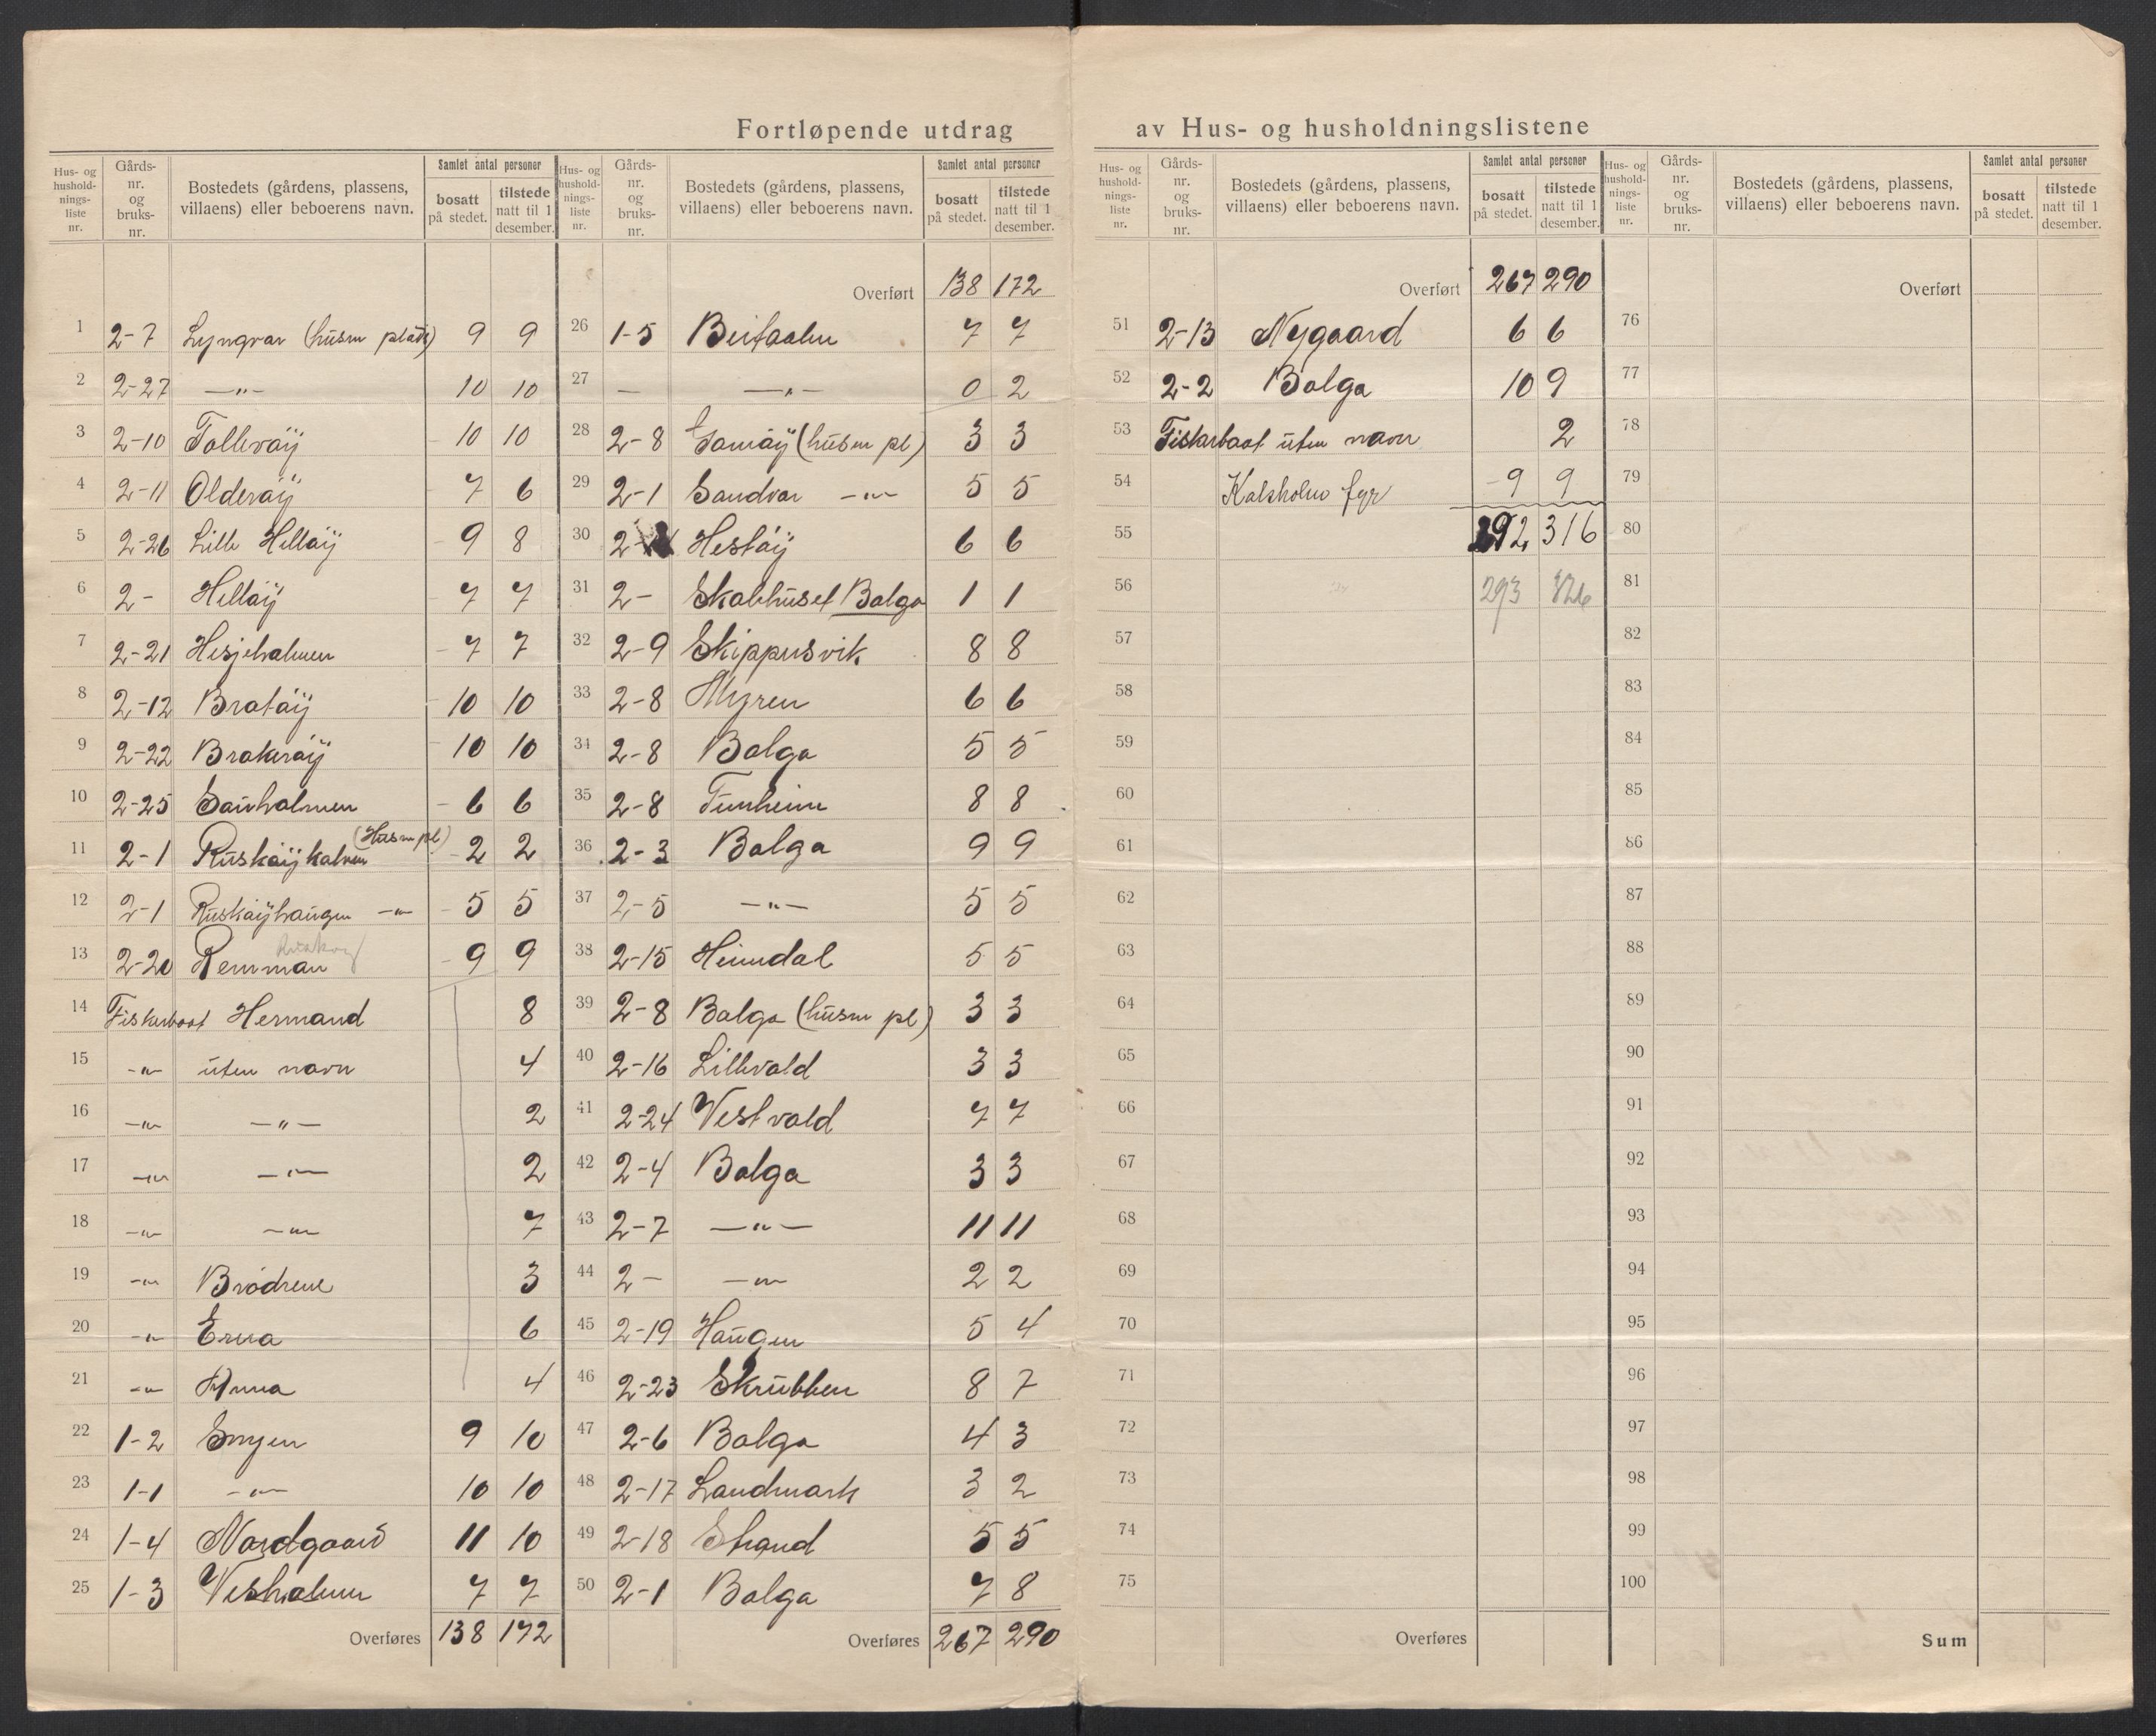 Fortløpende utdrag av Hus- og husholdningslistene
Hus- og hushold-nings-liste nr. | Gårds-nr. og bruks-nr. | Bostedets (gårdens, plassens, villaens) eller beboerens navn. | Samlet antal personer bosatt på stedet. | tilstede natt til 1 desember.
1 2-7 Lyngvær (husm plads) 9 9
2 2-27 —"— 10 10
3 2-10 Tollevöÿ 10 10
4 2-11 Olderöÿ 7 6
5 2-26 Lille Hellöÿ 9 8
6 2- Hellöÿ 7 7
7 2-21 Hesjeholmen 7 7
8 2-12 Bratöÿ 10 10
9 2-22 Brakeröÿ 10 10
10 2-25 Sauholmen 6 6
11 2-1 Rusköÿkalven (Husm pl) 2 2
12 2-1 Rusköÿhaugen —"— 5 5
13 2-20 Remman 9 9
14 Fiskerbaat Hermand 8
15 —"— uten navn 4
16 —"— —"— 2
17 —"— —"— 2
18 —"— —"— 7
19 —"— Brödrene 3
20 —"— Erna 6
21 —"— Anna 4
22 1-2 Engen 9 10
23 1-1 —"— 10 10
24 1-4 Nordgaard 11 10
25 1-3 Vesholmen 7 7
Overføres 138 172
Hus- og hushold-nings-liste nr. | Gårds-nr. og bruks-nr. | Bostedets (gårdens, plassens, villaens) eller beboerens navn. | Samlet antal personer bosatt på stedet. | tilstede natt til 1 desember.
Overført 138 172
26 1-5 7 7
27 — —"— 0 2
28 2-8 (husm pl) 3 3
29 2-1 Sandvær —"— 5 5
30 2- Hestöÿ 6 6
31 2- Skolehuset Bolga 1 1
32 2-9 Skippersvik 8 8
33 2-8 Myren 6 6
34 2-8 Bolga 5 5
35 2-8 Tunheim 8 8
36 2-3 Bolga 9 9
37 2-5 —"— 5 5
38 2-15 Heimdal 5 5
39 2-8 Bolga (husm pl) 3 3
40 2-16 Lillevold 3 3
41 2-24 Vestvold 7 7
42 2-4 Bolga 3 3
43 2-7 —"— 11 11
44 2- —"— 2 2
45 2-19 Haugen 5 4
46 2-23 Skrubben 8 7
47 2-6 Bolga 4 3
48 2-17 Landmark 3 2
49 2-18 Strand 5 5
50 2-1 Bolga 7 8
Overføres 267 290
Hus- og hushold-nings-liste nr. | Gårds-nr. og bruks-nr. | Bostedets (gårdens, plassens, villaens) eller beboerens navn. | Samlet antal personer bosatt på stedet. | tilstede natt til 1 desember.
Overført 267 290
51 2-13 Nygaard 6 6
52 2-2 Bolga 10 9
53 Fiskerbaat uten navn 2
54 Kalsholm fyr 9 9
55 292 316
56 293 326
57
58
59
60
61
62
63
64
65
66
67
68
69
70
71
72
73
74
75
Overføres
Hus- og hushold-nings-liste nr. | Gårds-nr. og bruks-nr. | Bostedets (gårdens, plassens, villaens) eller beboerens navn. | Samlet antal personer bosatt på stedet. | tilstede natt til 1 desember.
Overført
76
77
78
79
80
81
82
83
84
85
86
87
88
89
90
91
92
93
94
95
96
97
98
99
100
Sum